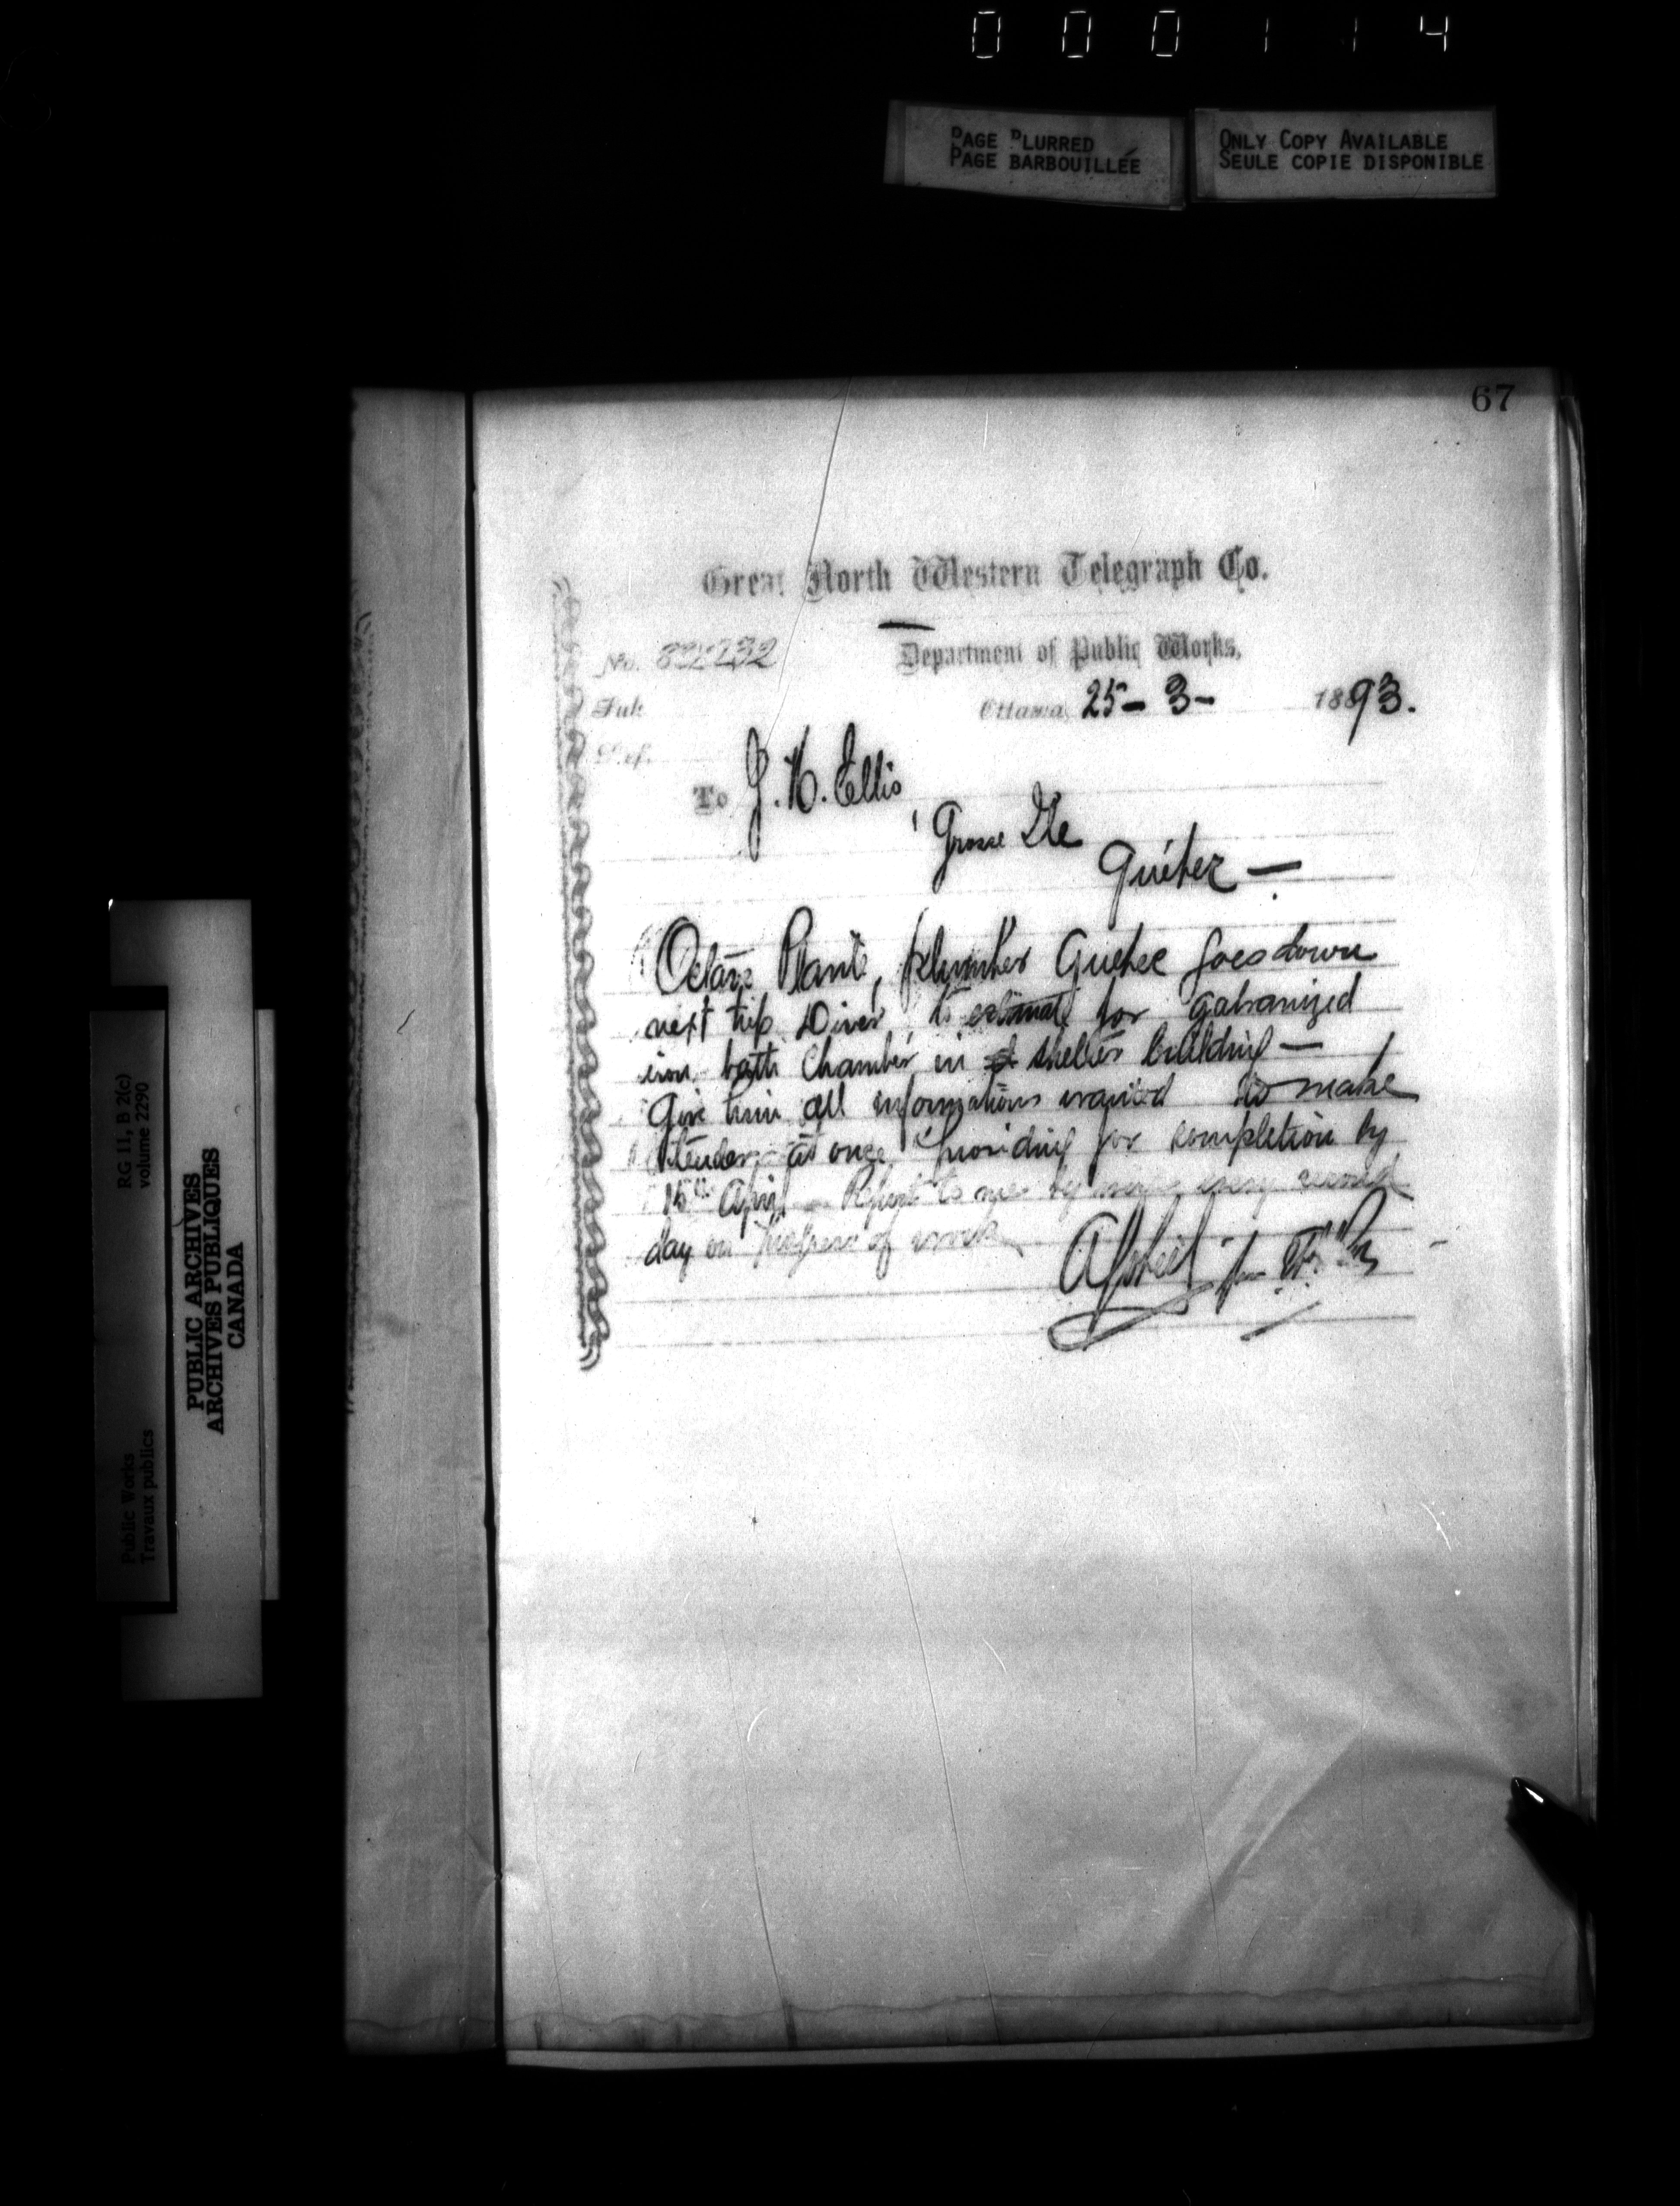 0 0 0 1 1 4
PAGE BLURRED
PAGE BARBOUILLÉE
ONLY COPY AVAILABLE
SEULE COPIE DISPONIBLE
67
Great North Western Telegraph Co.
Department of Public Works,
No.
Sub.
Ref.
Ottawa, 25 - 3 - 1893.
To J. H. Ellis
Grosse Ile
Québec —
Octave Planté, plumber Quebec goes down
next trip Diver, to estimate for galvanized
iron bath chamber in shelter building —
Give him all informations wanted to make
tender at once providing for completion by
15th April — Report to me by every second
day on progress of work
RG 11, B 2(c)
volume 2290
Public Works
Travaux publics
PUBLIC ARCHIVES
ARCHIVES PUBLIQUES
CANADA